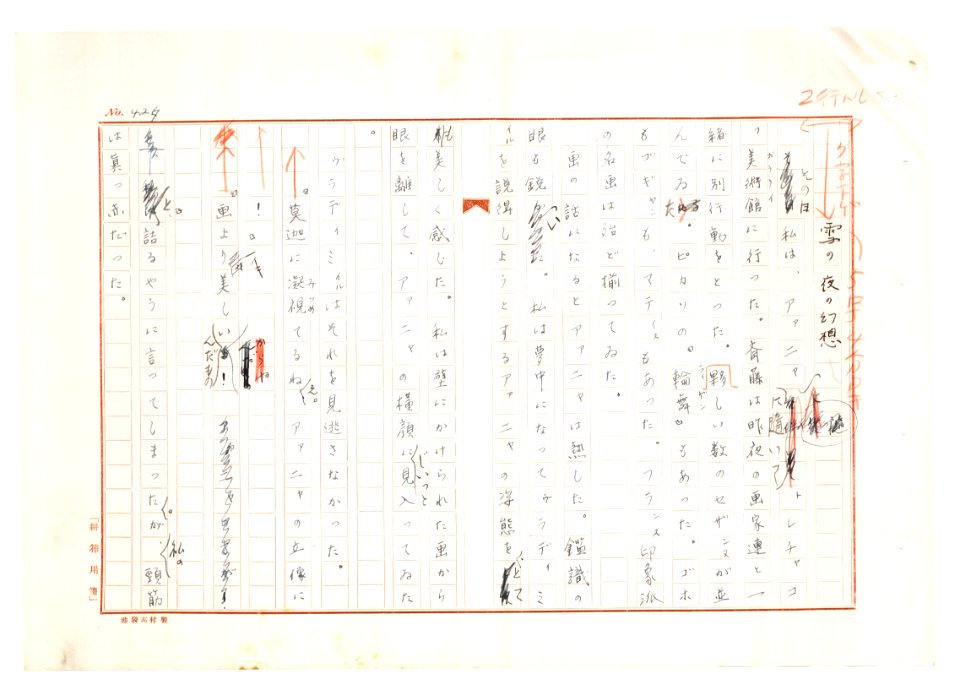 No. 425
2行トル
雪の夜の幻想
その日私は、アァニャに随いてトレチャコ
フ美術館に行った。斎藤は昨夜の画家連と一
緒に別行動をとった。夥しい数のセザンヌが並
んでゐた。ピカソの「輪舞」もあった。ゴホ
もゴギャンも、マティスもあった。フランス印象派
の名画は殆ど揃ってゐた。
画の話になるとアァニャは熱した。鑑識の
眼も鋭い。私は夢中になってヴラディミ
イルを説得しようとするアァニャの姿態を、とて
も美しく感じた。私は壁にかけられた画から
眼を離して、アァニャの横顔にじいっと見入ってゐた
。
ヴラディミイルはそれを見逃さなかった。
「莫迦に凝視てるねえ。アァニャの立像に
！」
「画より美しいんだもの！」
と、詰るやうに言ってしまった。が、私の頸筋
は真っ赤だった。
「耕雑用箋」
池袋高村製